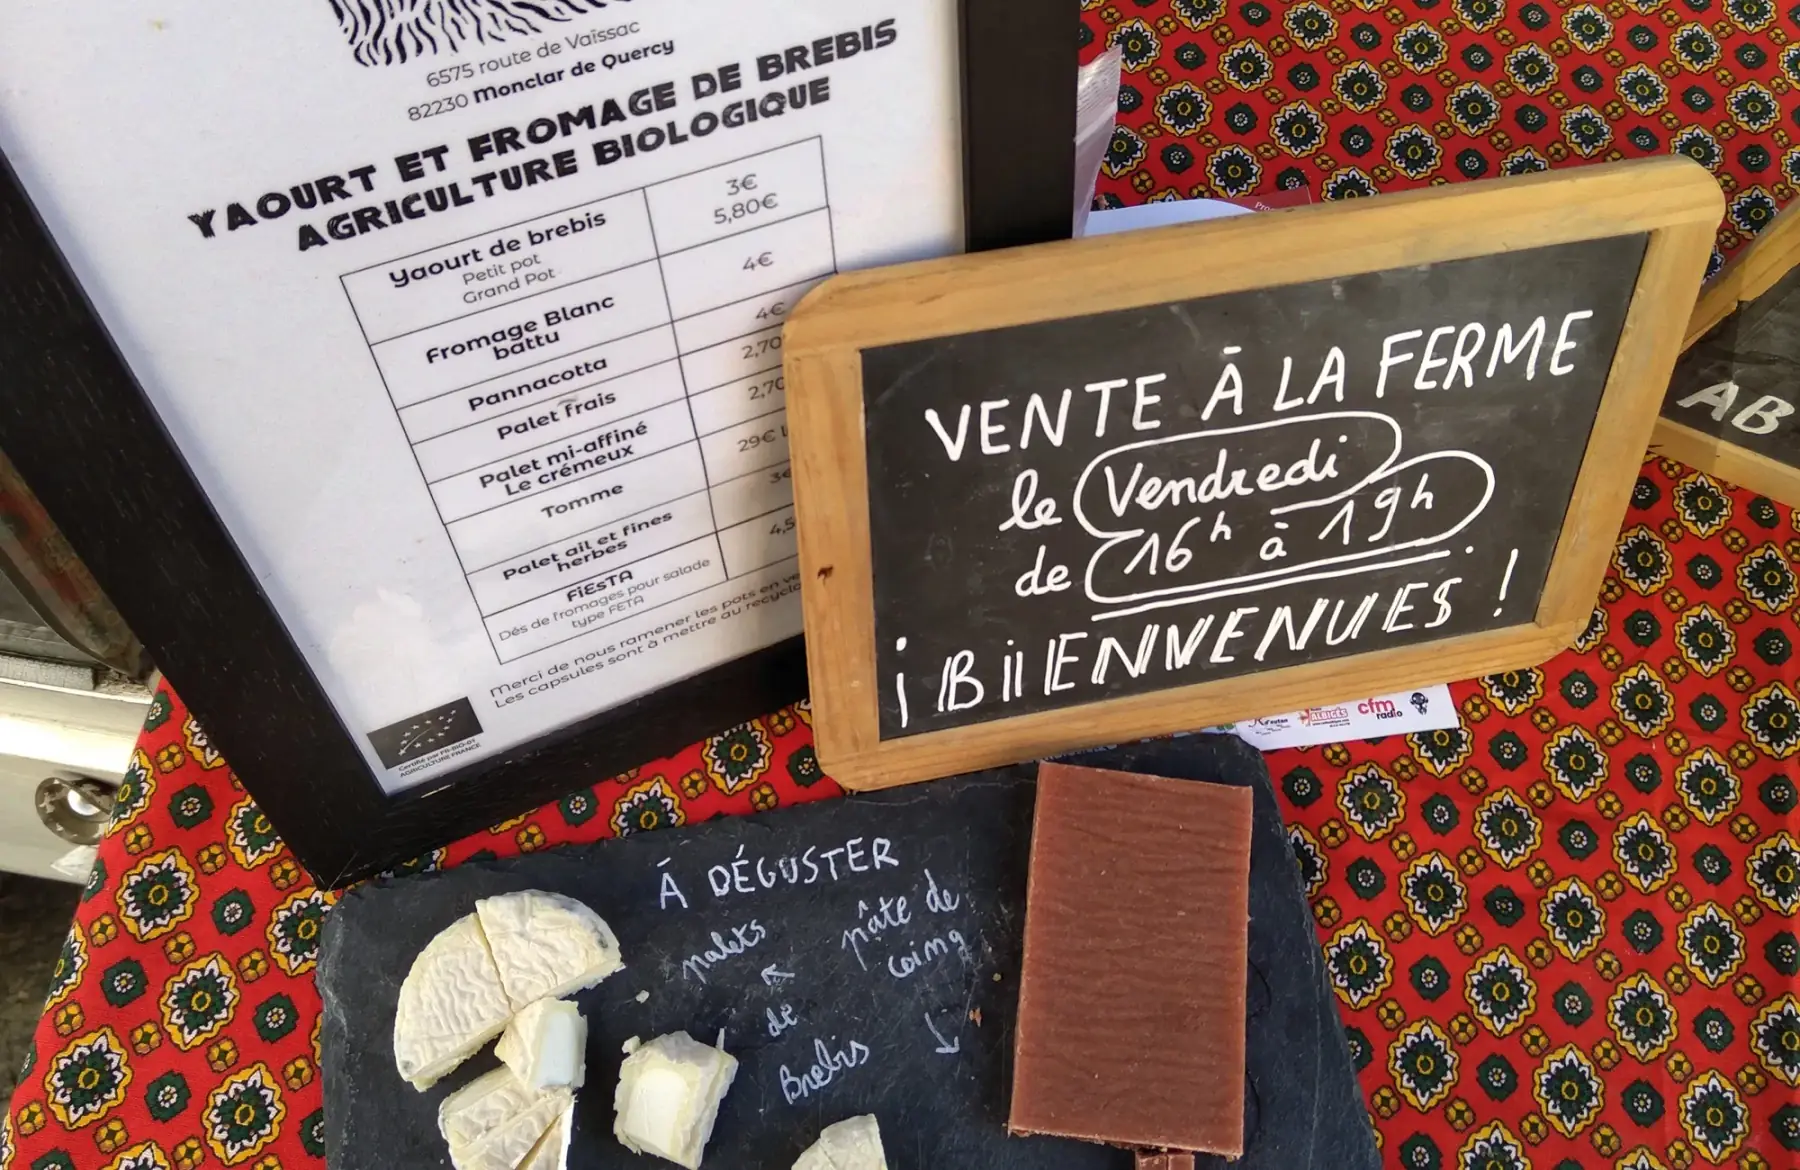 6575 route de Vaïssac
82230 Monclar de Quercy
YAOURT ET FROMAGE DE BREBIS
AGRICULTURE BIOLOGIQUE
Yaourt de brebis
Petit pot 3€
Grand Pot 5,80€
Fromage Blanc
battu 4€
Pannacotta 4€
Palet frais 2,70
Palet mi-affiné 2,70
Le crémeux
Tomme 29€
Palet ail et fines
herbes 3€
FiEsTA 4,5
Dés de fromages pour salade
type FETA
Merci de nous ramener les pots en
Les capsules sont à mettre au
Certifié par FR-BIO-01
AGRICULTURE FRANCE
VENTE À LA FERME
le Vendredi
de 16h à 19h.
¡BiENVENUES !
AB
ALBIGÈS
cfm
radio
À DÉGUSTER
palets
de
Brebis
pâte de
coing